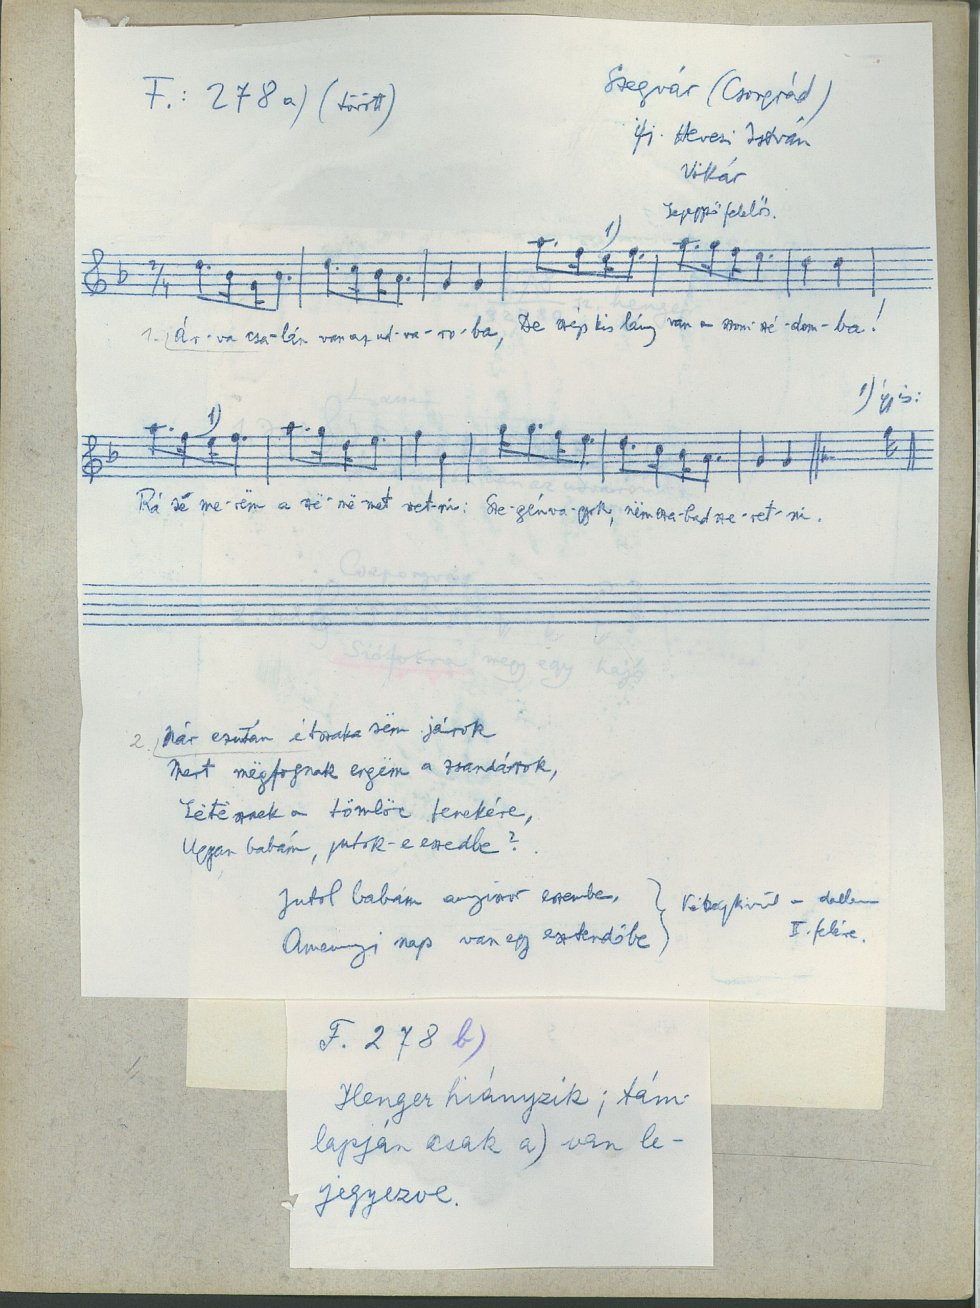 F.: 278 a) (törött)
Szegvár (Csongrád)
ifj. Hevesi István
Vikár
1)
1. Ár-va csa-lán van az ud-va-ro-ba, De szép kis lány van a szom-szé-dom-ba!
1) így is:
1)
Rá së me-rëm a szë-më-met vet-ni: Sze-gény va-gyok, nëm sza-bad sze-ret-ni.
Siófokra megy egy hajó
2. Már ezután étszaka sëm járok
Mert mëgfognak engëm a zsandárok,
Lëtësznek a tömlöc fenekére,
Ugyan babám, jutok-e eszedbe?
Jutol babám annyiszor eszembe,
Amennyi nap van egy esztendőbe
a dallam
II. felére.
F. 278 b)
Henger hiányzik; tám-
lapján csak a) van le-
jegyezve.